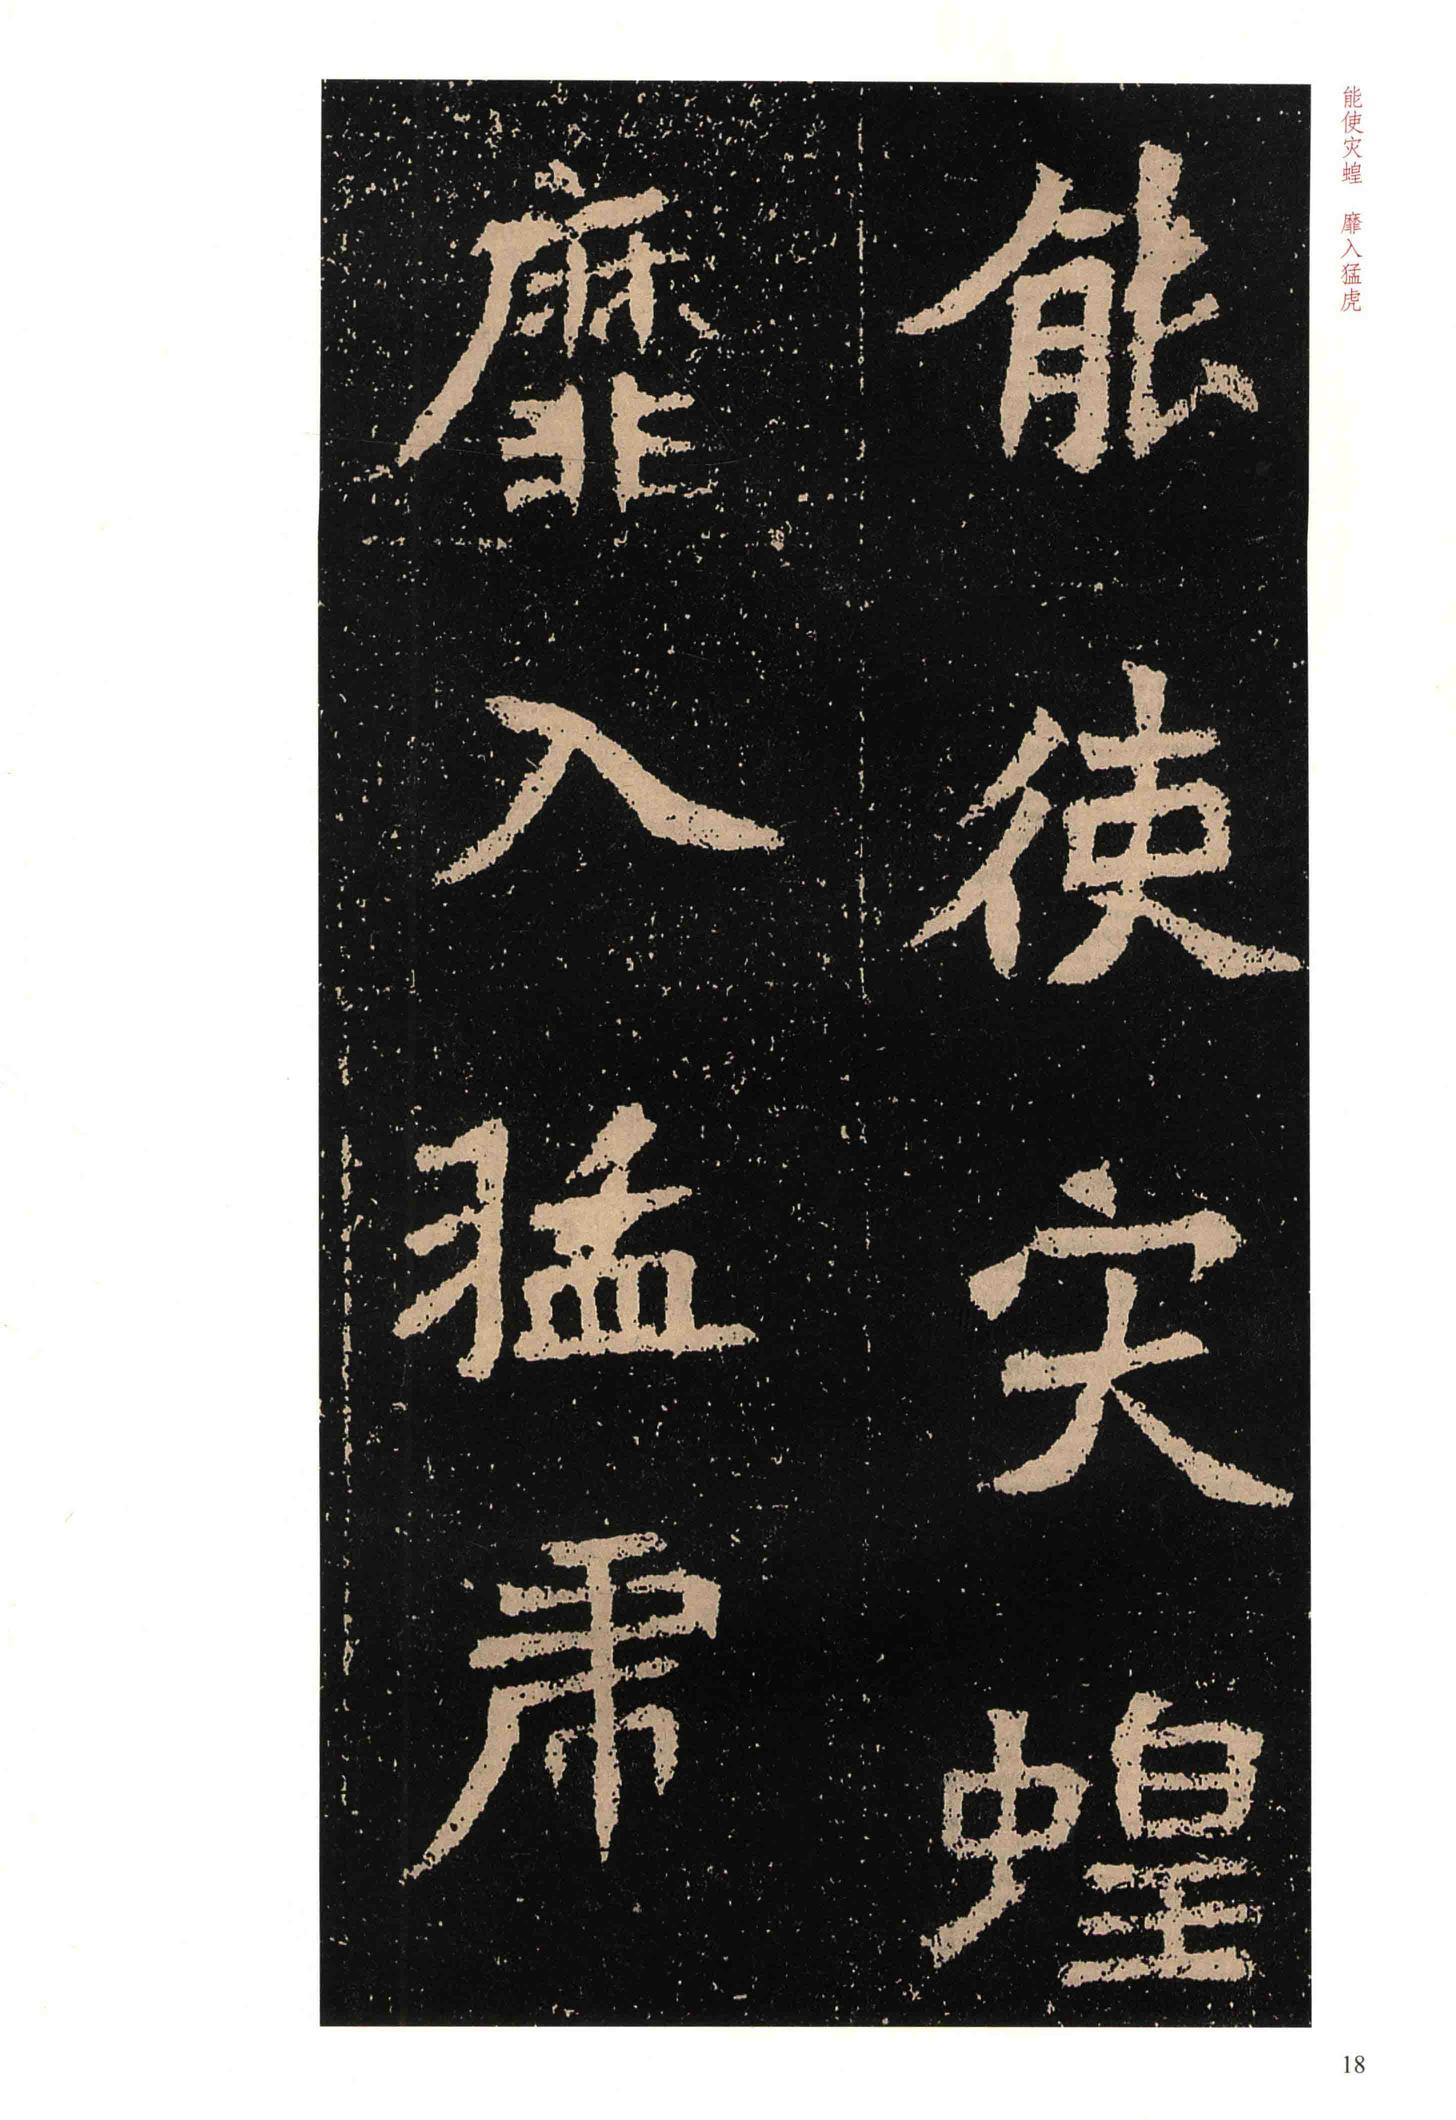 能使灾蝗
靡入猛虎
能使灾蝗　靡入猛虎
18